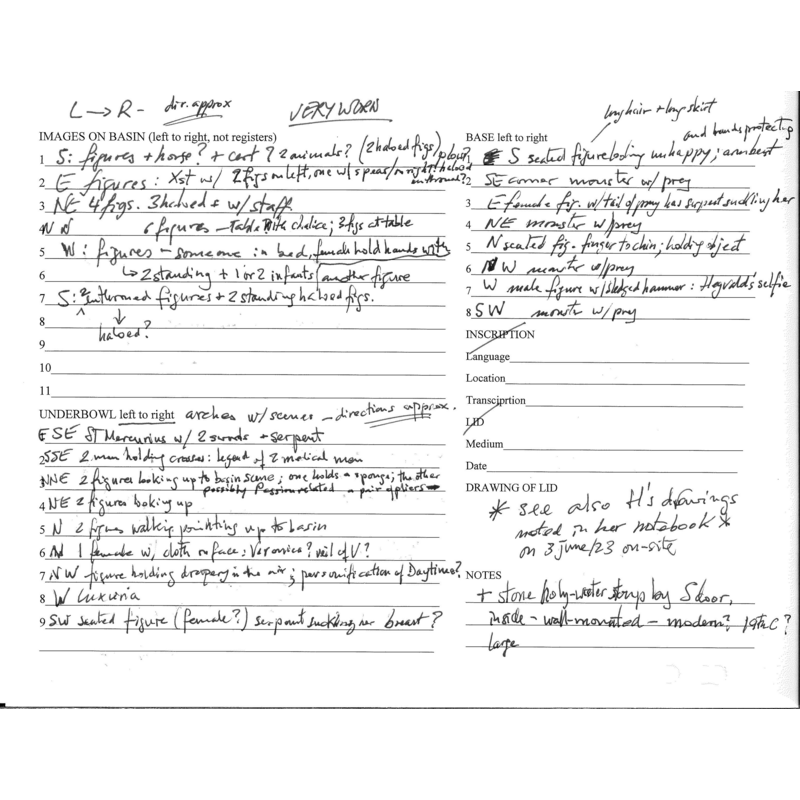 L → R - dir. approx
VERY WORN
IMAGES ON BASIN (left to right, not registers)
1 S: figures + horse? + cart? 2 animals? (2 haloed figs/plow?
2 E figures: Xst w/ 2 figs on left, one w/ spear/on right: haloed
enthroned?
3 NE 4 figs. 3 haloed & w/ staff
4 N 6 figures - Table with chalice; 3 figs at table
5 W: figures - someone in bed, female hold hands with
6 ↳ 2 standing + 1 or 2 infants another figure
7 S: 2 enthroned figures + 2 standing haloed figs.
8 haloed?
9
10
11
UNDERBOWL left to right arches w/ scenes - directions approx.
ESE St Mercurius w/ 2 swords + serpent
2 SSE 2 men holding crosses: legend of 2 medical men
NNE 2 figures looking up to basin scene; one holds a sponge; the other
possibly Passion related a pair of pliers
4 NE 2 figures looking up
5 N 2 figures walking pointing up to basin
6 1 female w/ cloth on face: Veronica? veil of V?
7 NW figure holding drapery in the air; personification of Daytime?
8 W Luxuria
9 SW seated figure (female?) serpent suckling her breast?
long hair + long skirt
and hands protecting
BASE left to right
1 S seated figure looking unhappy; arm bent
2 SE corner monster w/ prey
3 E female fig. w/ tail of prey has serpent suckling her
4 NE monster w/ prey
5 N seated fig - finger to chin; holding object
6 NW monster w/ prey
7 W male figure w/ sledgehammer: Hegvald's selfie
8 SW monster w/ prey
INSCRIPTION
Language
Location
Transciprtion
LID
Medium
Date
DRAWING OF LID
* see also H's drawings
noted in her notebook *
on 3 june/23 on-site
NOTES
+ stone holy-water stoup by S door,
inside - wall-mounted - modern? 19thC?
large